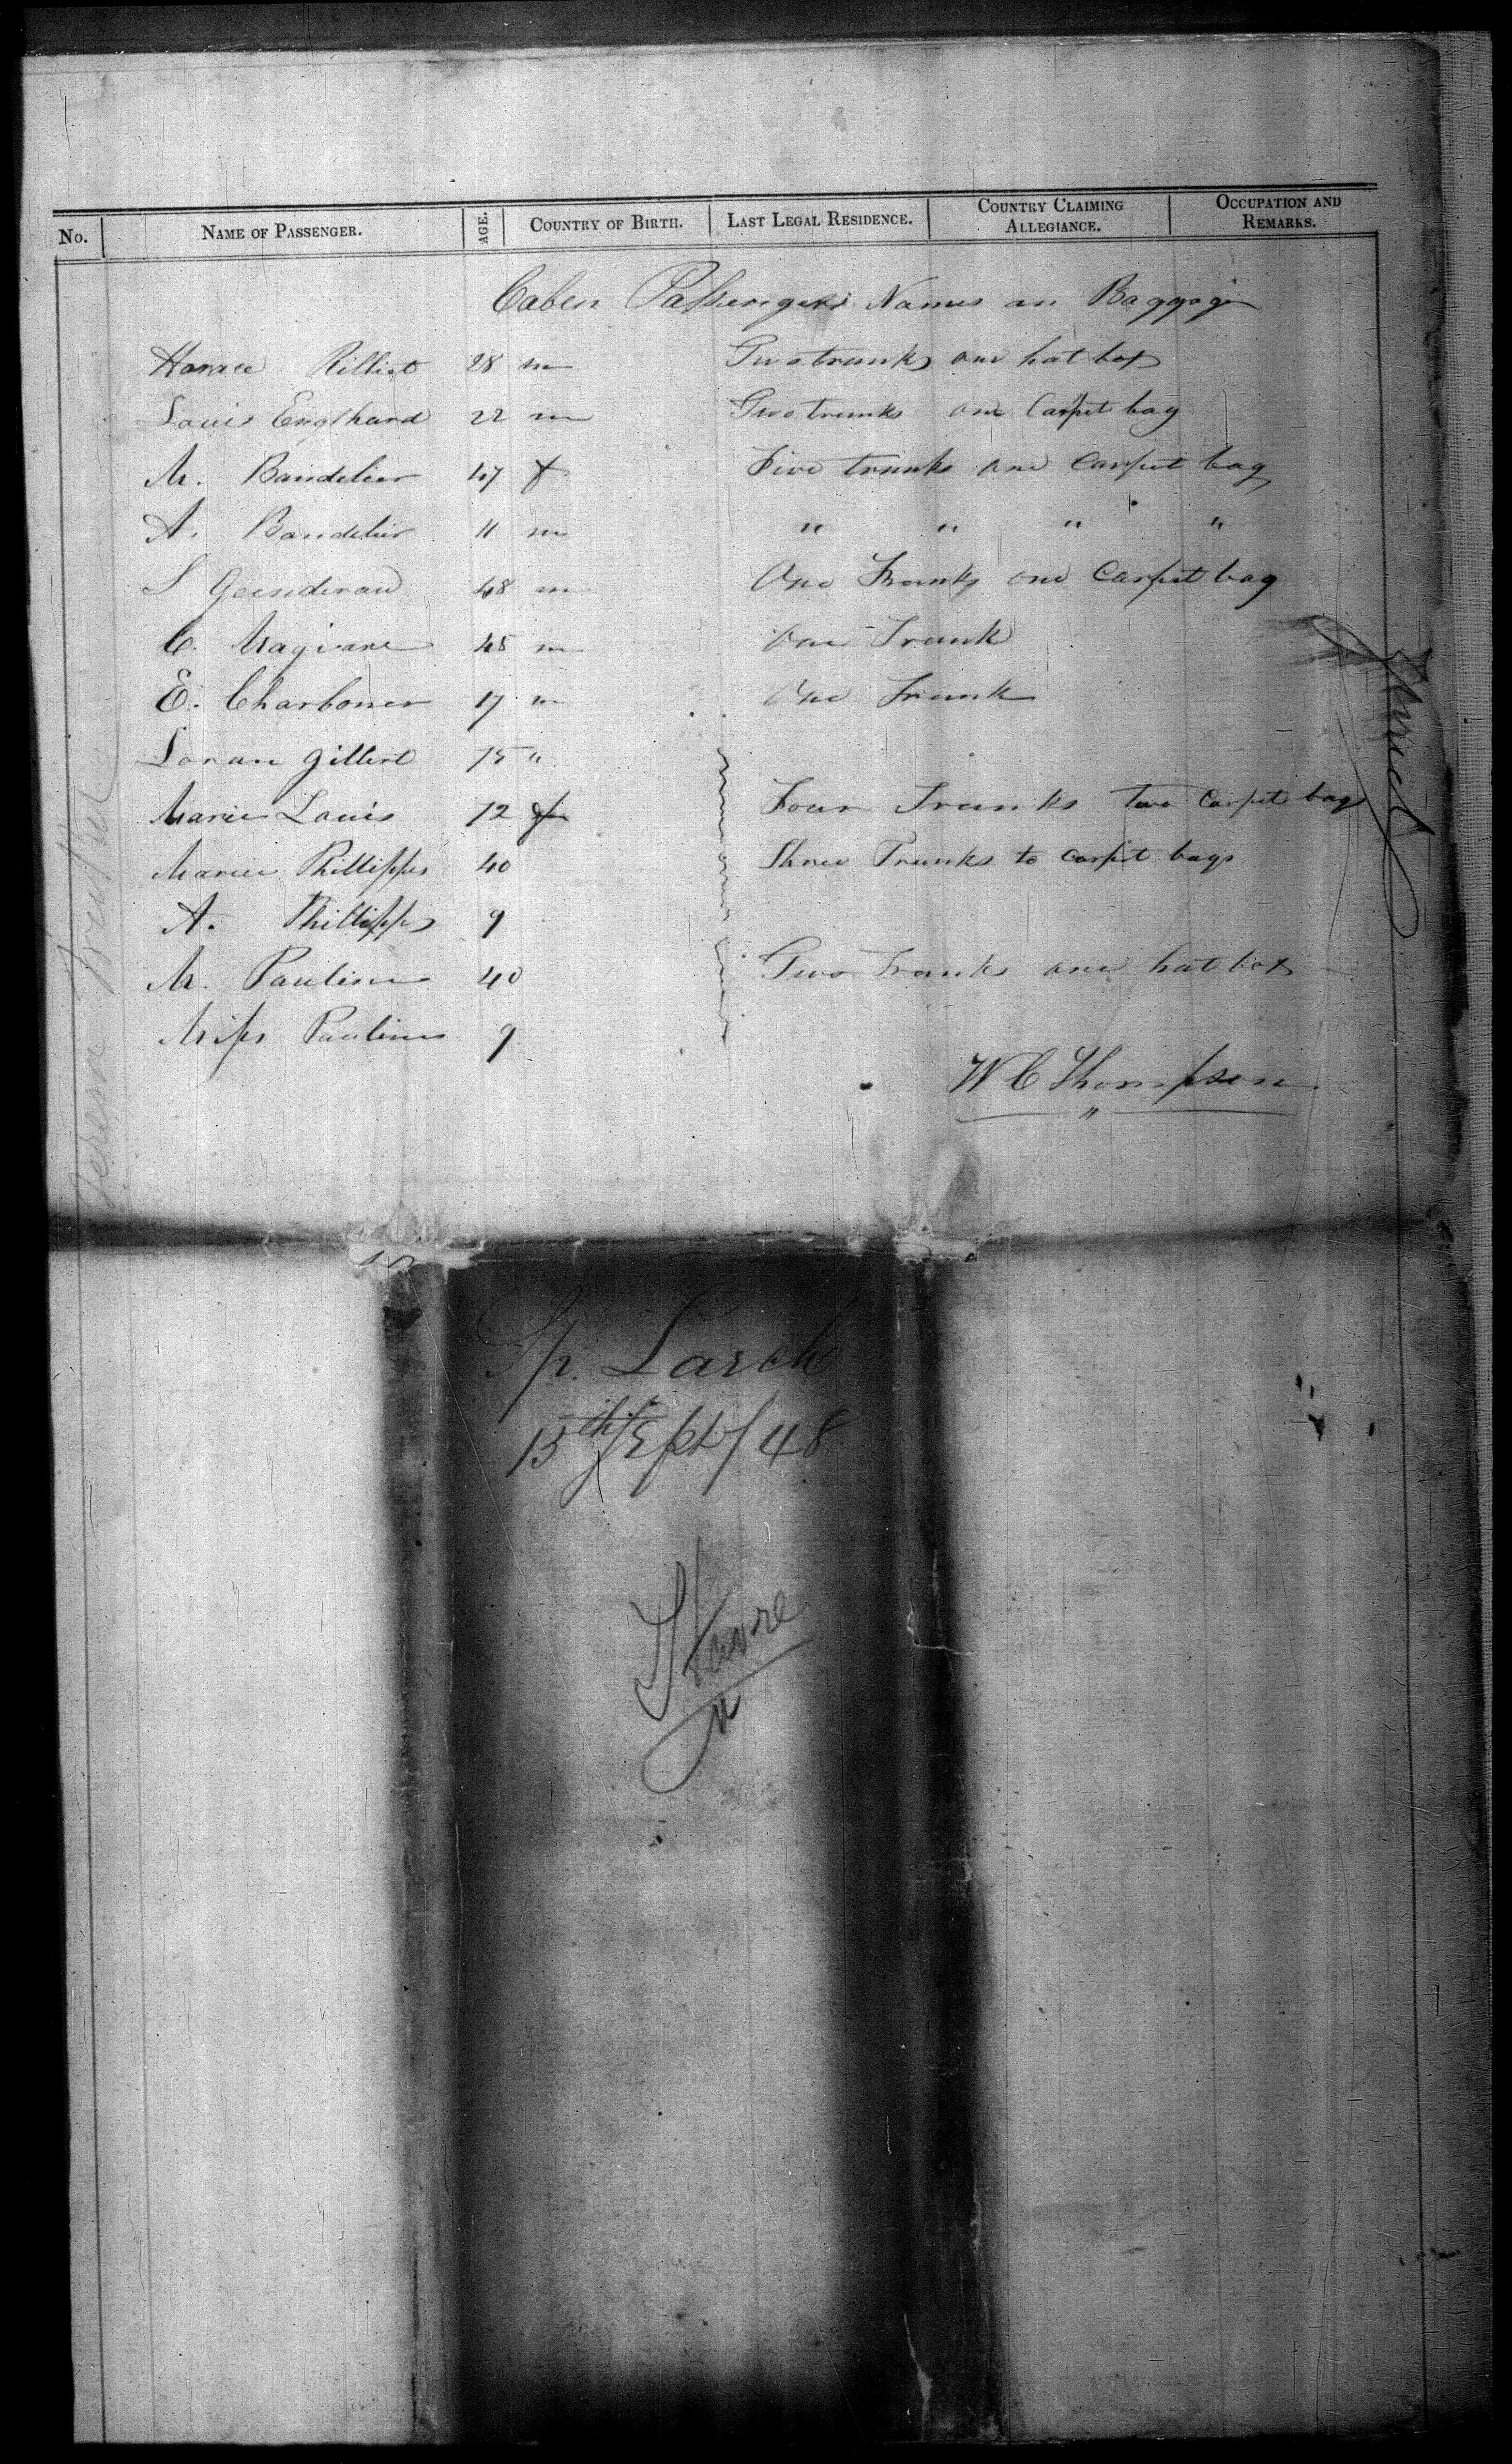 No. NAME OF PASSENGER. AGE. COUNTRY OF BIRTH. LAST LEGAL RESIDENCE. COUNTRY CLAIMING ALLEGIANCE. OCCUPATION AND REMARKS.
Caben Passengers Names an Baggage
Horace Rilliet 28 m Two trunks one hat box
Louis Englhard 22 m Two trunks one Carpet bag
M. Bandelier 47 f Five trunks one carpet bag
A. Bandelier 11 m " " " "
S 48 m One Trunks one Carpet bag
C. 45 m One Trunk
E. Charboner 17 m One Trunk
Loran Gilbert 75 "
Marie Louis 72 f Four Trunks two Carpet bags
Marie Phillipps 40 Three Trunks to carpet bags
A. Phillipps 9
M. Pauline 40 Two Trunks one hat box
Miss Pauline 9
W C Thompson
"
Sp. Larch
15th Sept/48
Havre